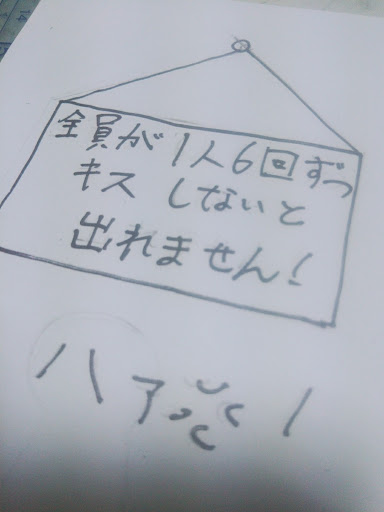 全員が1人6回ずつ
キス しないと
出れません!
ハァ!